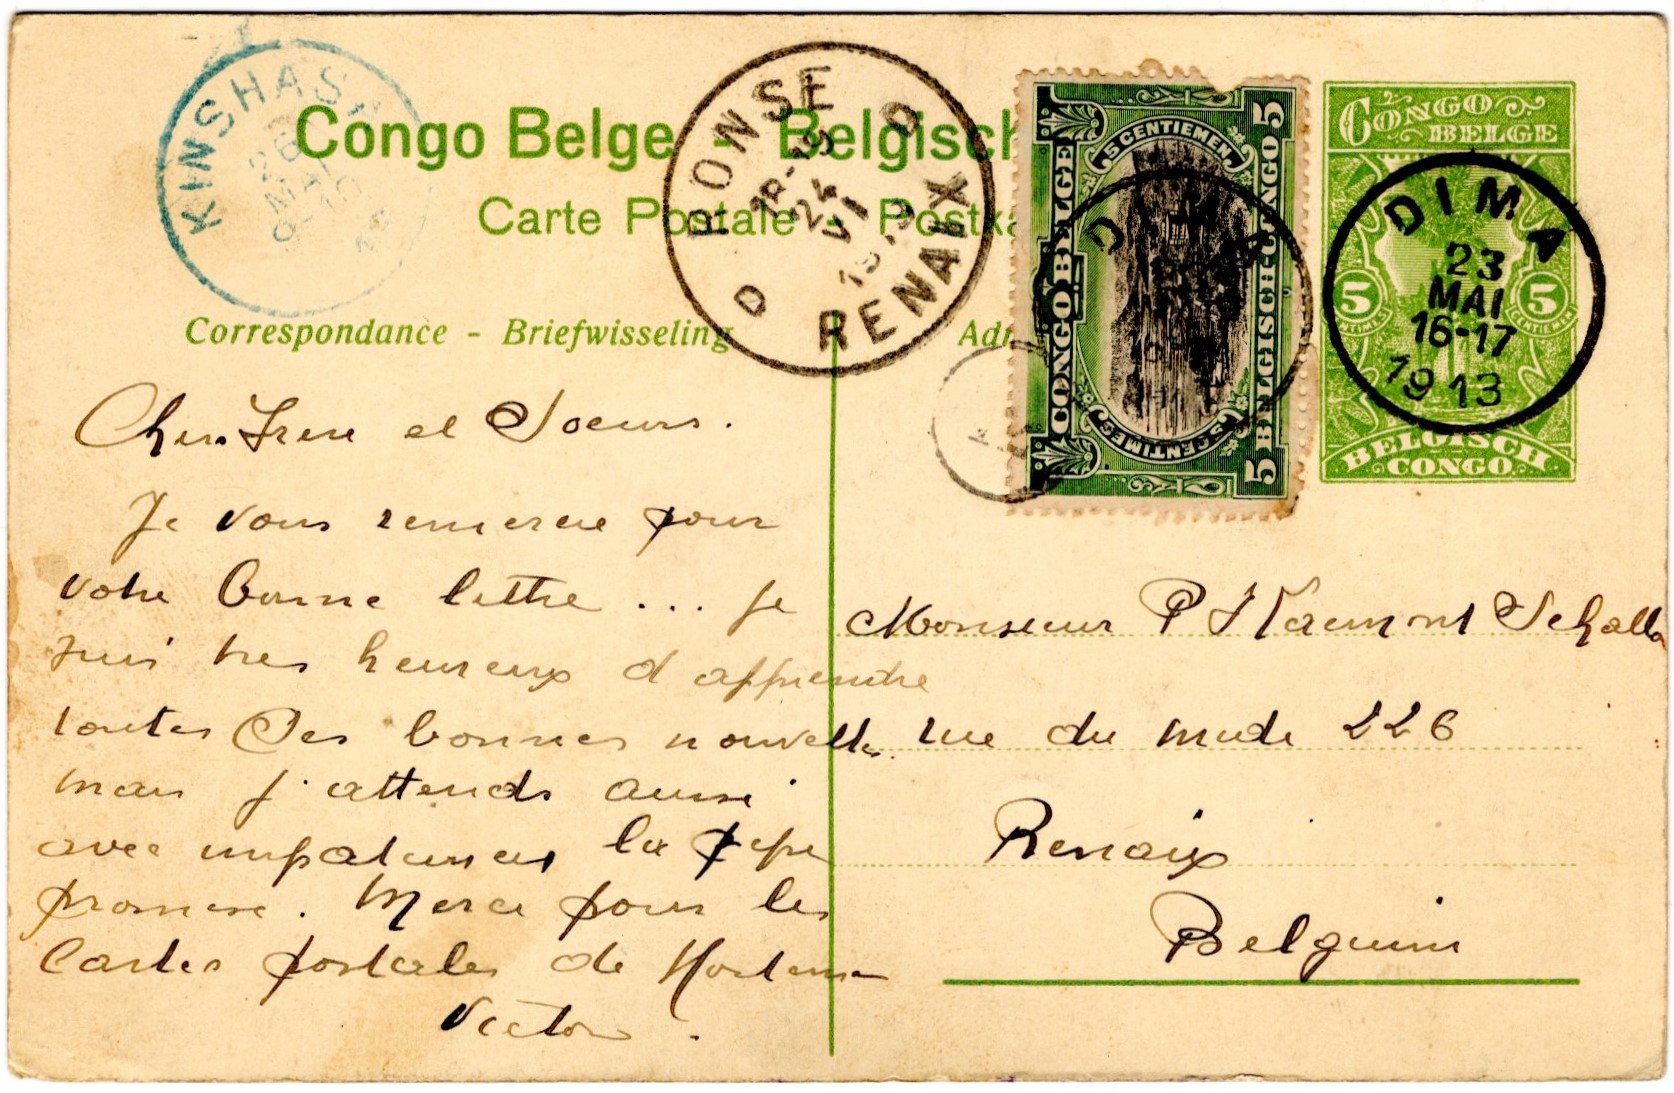 KINSHASA
26
MAI
9-10
Congo Belge - Belgisch
Carte Postale - Postka
Correspondance - Briefwisseling
RONSE
18-19
24
VI
RENAIX
D D
5 CENTIEMEN 5
CONGO BELGE
BELGISCH-CONGO
5 CENTIMES 5
DIMA
CONGO
BELGE
5 5
CENTIMES CENTIEMEN
BELGISCH
CONGO
DIMA
23
MAI
16-17
1913
Chers Frere et Soeurs.
Je vous remercie pour
votre bonne lettre ... je
suis tres heureux d apprendre
toutes Ses bonnes nouvelles
mais j'attends aussi
avec impatience la pipe
promise. Merci pour les
Cartes postales de Hortense
Victor.
Monsieur P
rue du 226
Renaix
Belguim